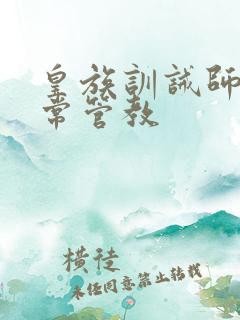 皇族訓誡師
常管教
橫徒
未经同意禁止转载